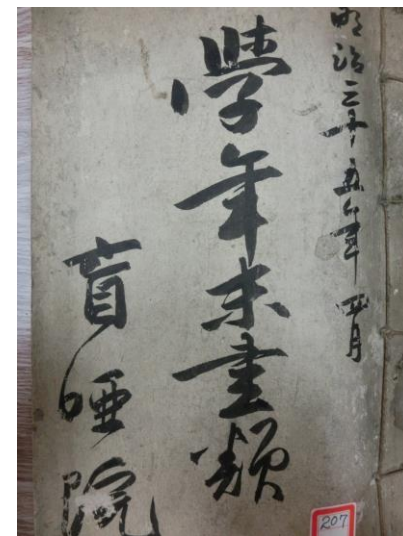 明治三十五年四月
學年末書類
盲唖院
207